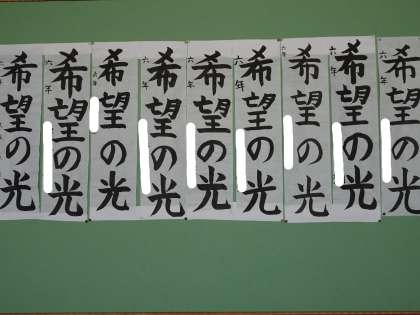 希望の光
六年
希望の光
六年
希望の光
六年
希望の光
六年
希望の光
六年
希望の光
六年
希望の光
六年
希望の光
六年
希望の光